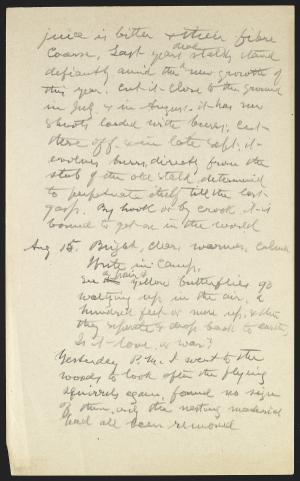 juice is bitter & their fibre
coarse. Last years dead stalks stand
defiantly amid the new growth of
this year. Cut it close to the ground
in July & in August it has new
shoots loaded with burrs; cut
these off & in late Sept. it
evolves burrs directly from the
stub of the old stalk, determined
to perpetuate itself till the last
gasp. By hook or by crook it is
bound to get on in the world
Aug 15. Bright, clear, warmer, calmer
Write in camp.
See a pair of yellow butterflies go
waltzing up in the air, a
hundred feet or more up, & then
they separate & drop back to earth,
Is it love, or war?
Yesterday P.M. I went to the
woods to look after the flying
squirrels again, found no sign
of them, only the nesting material
had all been removed